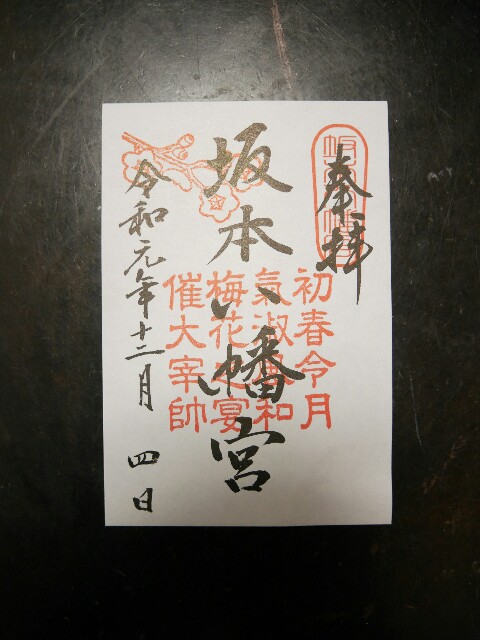 奉拝
坂本八幡宮
初春令月
氣淑風和
梅花之宴
催大宰帥
令和元年十二月四日